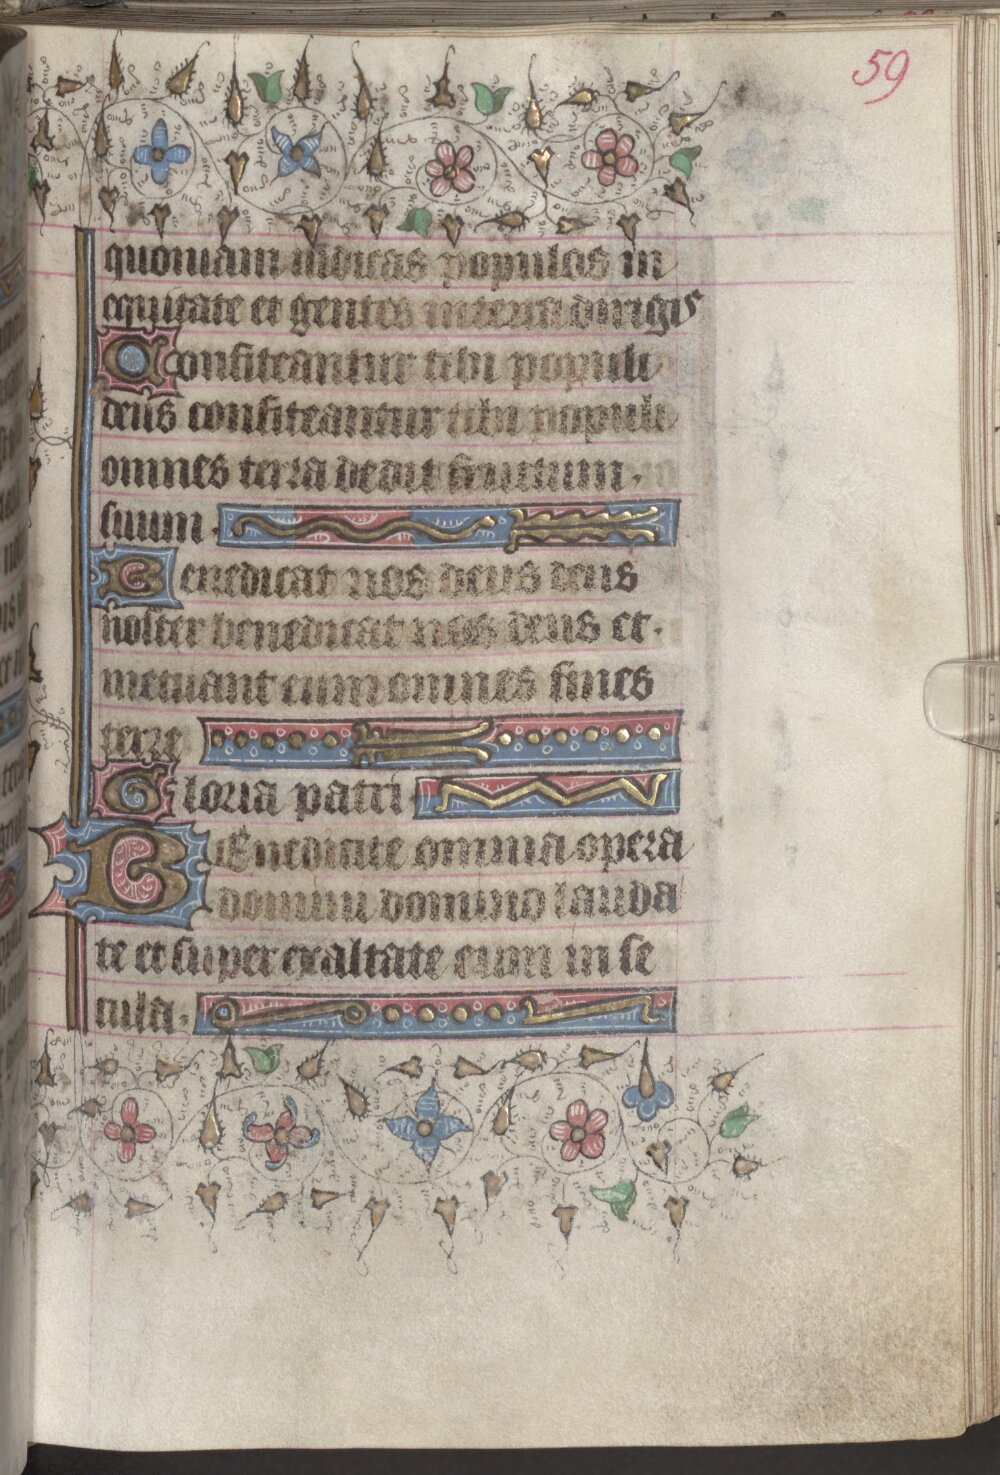 59
quoniam iudicas populos in
equitate et gentes in terra dirigis
Confiteantur tibi populi
deus confiteantur tibi populi
omnes terra dedit fructum
suum
Benedicat nos deus deus
noster benedicat nos deus et
metuant eum omnes fines
terre
Gloria patri
BEnedicite omnia opera
domini domino lauda
te et super exaltate eum in se
cula